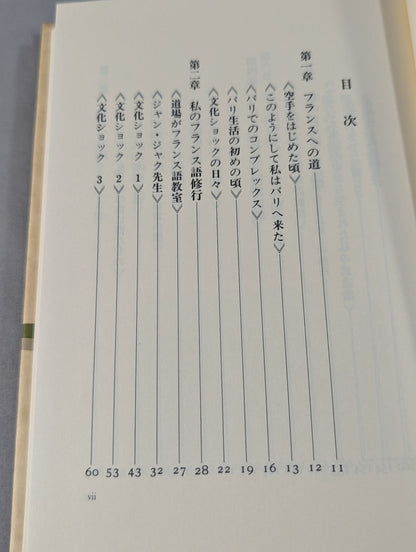 目次
第一章 フランスへの道 11
〈空手をはじめた頃〉 12
〈このようにして私はパリへ来た〉 13
〈パリでのコンプレックス〉 16
〈パリ生活の初めの頃〉 19
〈文化ショックの日々〉 22
第二章 私のフランス語修行 28
〈道場がフランス語教室〉 27
〈ジャン・ジャク先生〉 32
〈文化ショック 1〉 43
〈文化ショック 2〉 53
〈文化ショック 3〉 60
vii